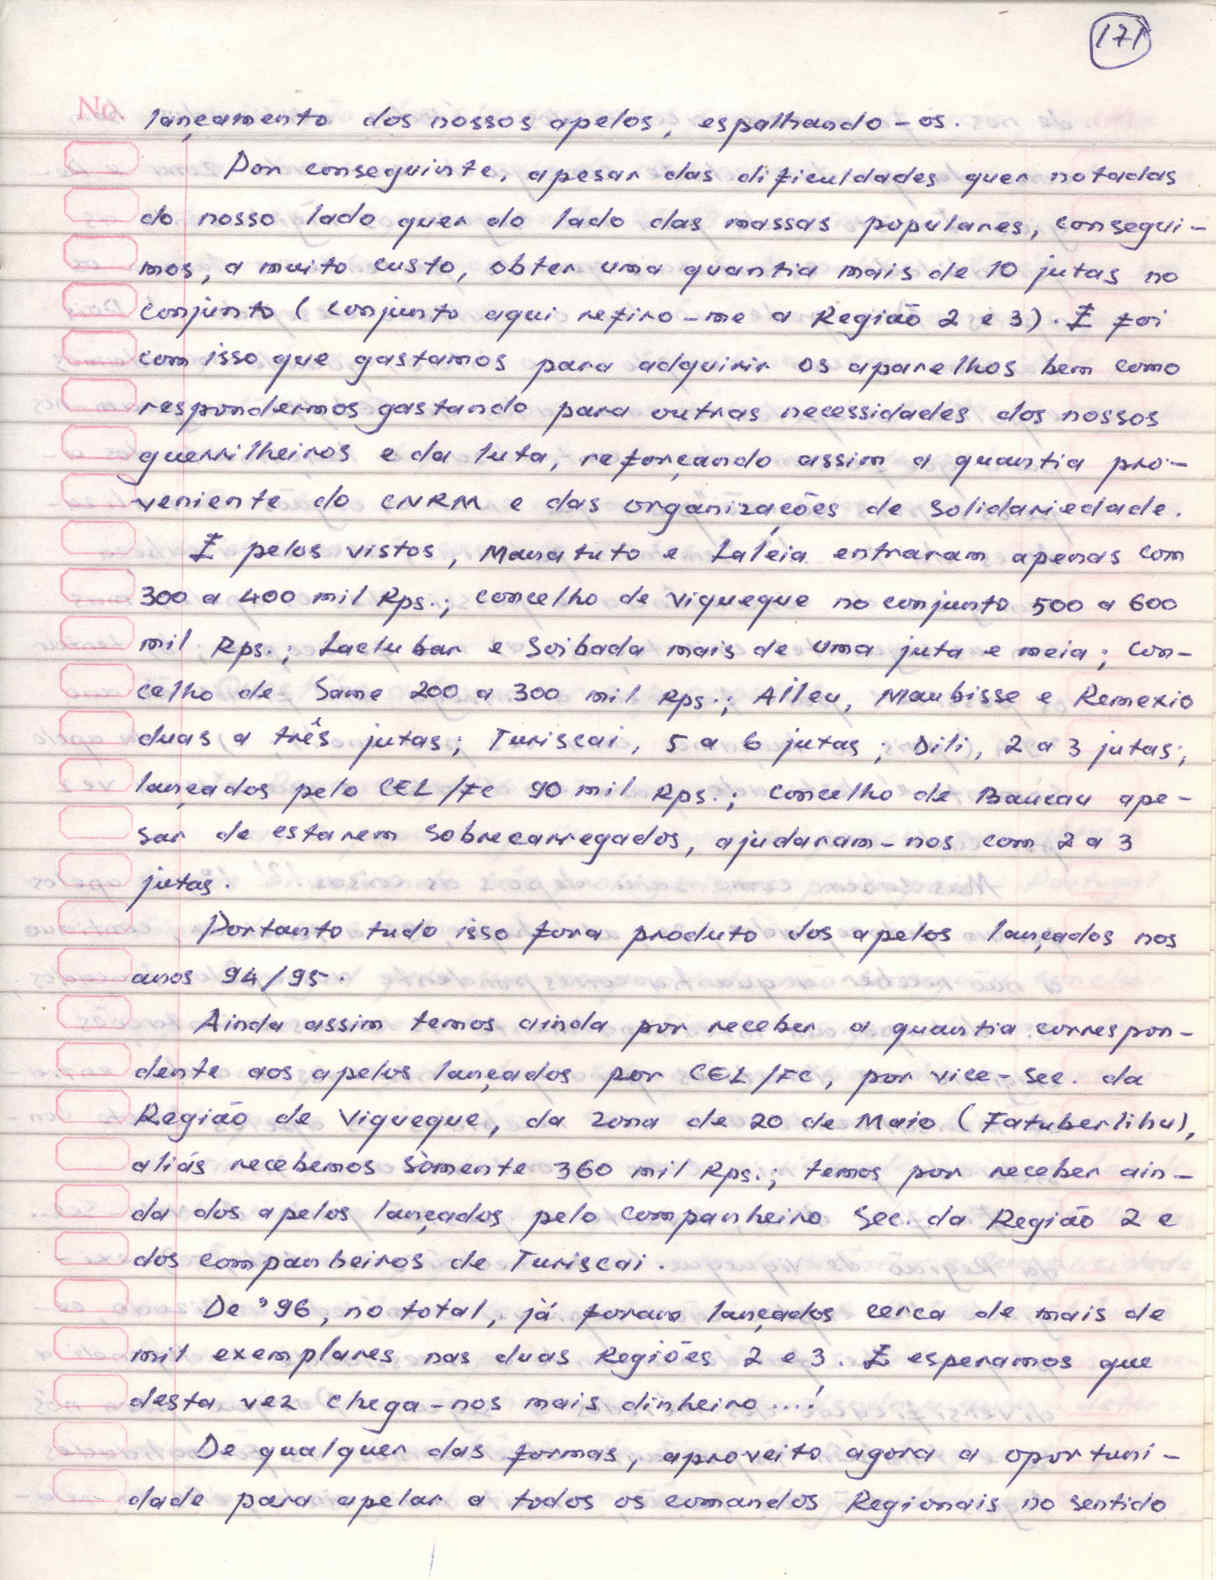 171
No.
lançamento dos nossos apelos, espalhando-os.
Por conseguinte, apesar das dificuldades quer notadas
do nosso lado quer do lado das massas populares, consegui-
mos, a muito custo, obter uma quantia mais de 10 jutas no
conjunto (conjunto aqui refiro-me a Região 2 e 3). E foi
com isso que gastamos para adquirir os aparelhos bem como
respondermos gastando para outras necessidades dos nossos
guerrilheiros e da luta, reforçando assim a quantia pro-
veniente do CNRM e das organizações de Solidariedade.
E pelos vistos, Manatuto e Laléia entraram apenas com
300 a 400 mil Rps.; concelho de Viqueque no conjunto 500 a 600
mil Rps.; Laclubar e Soibada mais de uma juta e meia; con-
celho de Same 200 a 300 mil Rps.; Aileu, Maubisse e Remexio
duas a três jutas; Turiscai, 5 a 6 jutas; Dili, 2 a 3 jutas;
lançados pelo CEL/FC 90 mil Rps.; concelho de Baucau ape-
sar de estarem sobrecarregados, ajudaram-nos com 2 a 3
jutas.
Portanto tudo isso fora produto dos apelos lançados nos
anos 94/95.
Ainda assim temos ainda por receber a quantia correspon-
dente aos apelos lançados por CEL/FC, por vice-Sec. da
Região de Viqueque, da zona de 20 de Maio (Fatuberlihu),
aliás recebemos sòmente 360 mil Rps.; temos por receber ain-
da dos apelos lançados pelo companheiro Sec. da Região 2 e
dos companheiros de Turiscai.
De '96, no total, já foram lançados cerca de mais de
mil exemplares nas duas Regiões 2 e 3. E esperamos que
desta vez chega-nos mais dinheiro....!
De qualquer das formas, aproveito agora a oportuni-
dade para apelar a todos os comandos Regionais no sentido